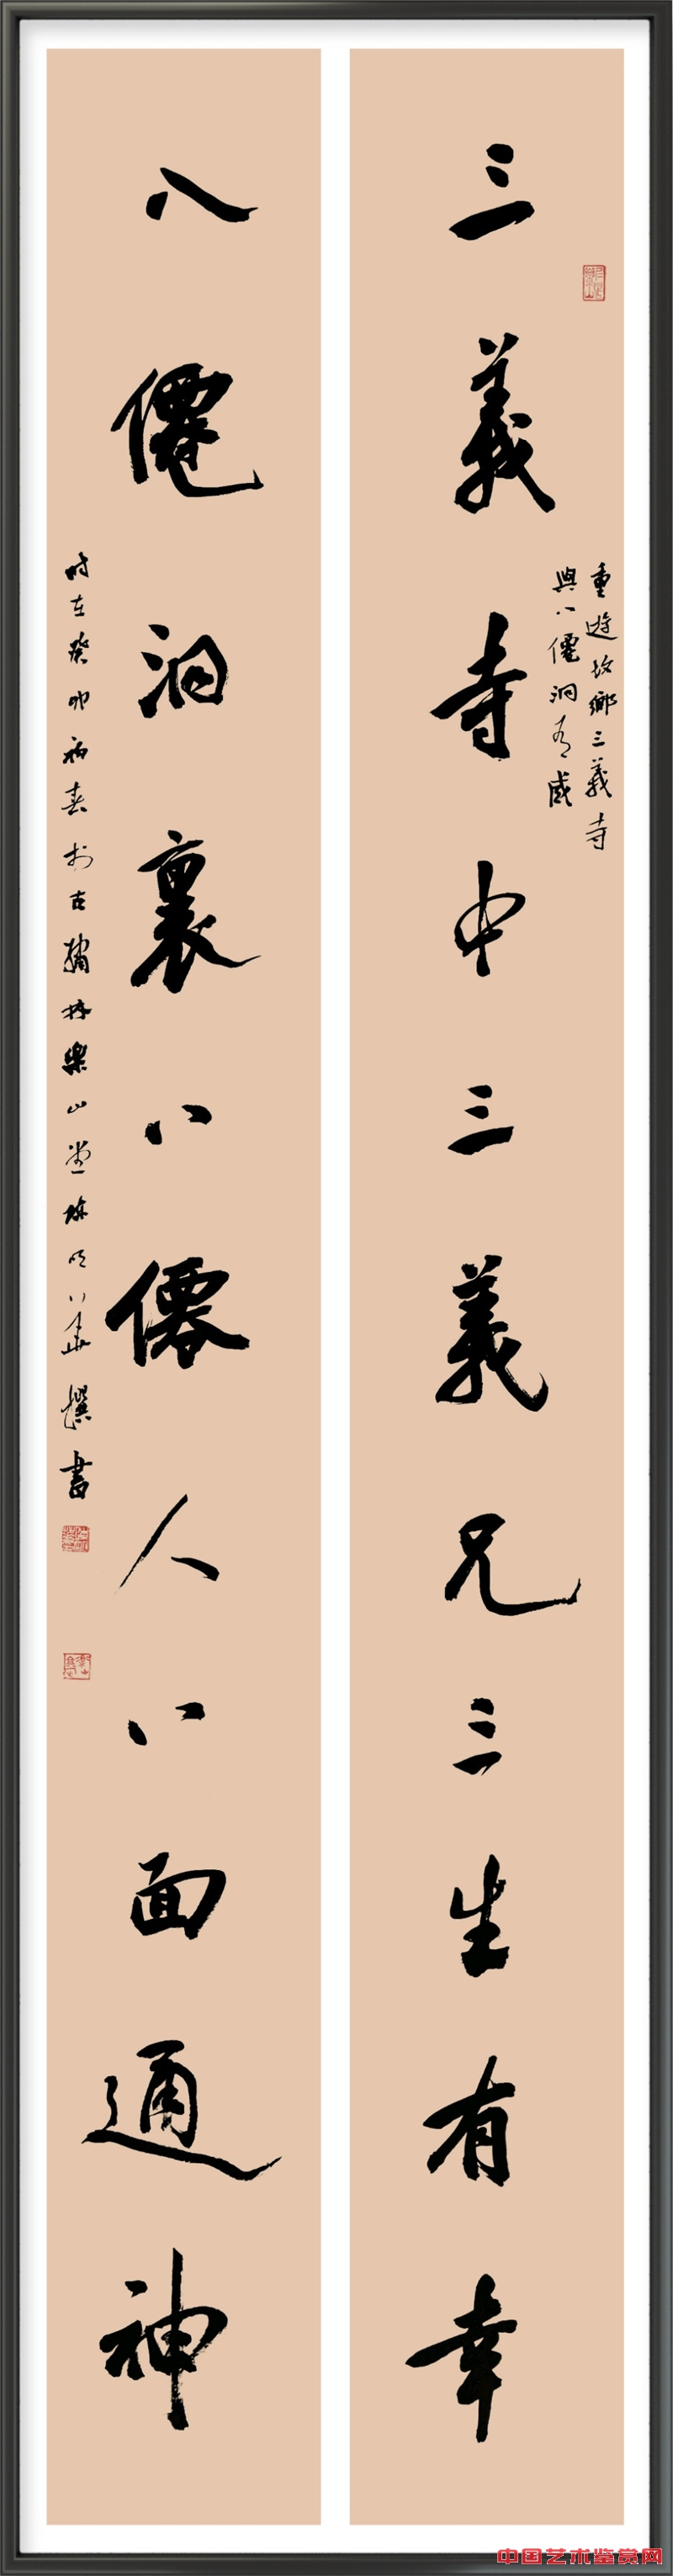 三義寺中三義兄三生有幸
重遊故鄉三義寺
與八僊洞有感
八僊洞裏八僊人八面通神
時在癸卯初春於古
樂山堂
撰書
中国艺术鉴赏网